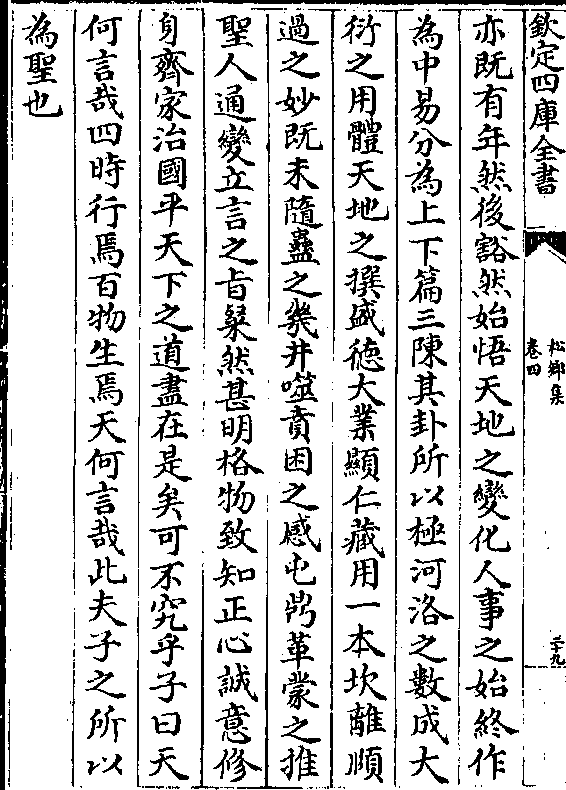 欽定四庫全書
松鄉集
卷四
二十九
亦既有年然後豁然始悟天地之變化人事之始終作
為中易分為上下篇三陳其卦所以極河洛之數成大
衍之用體天地之撰盛德大業顯仁藏用一本坎離順
過之妙既未隨蠱之幾井噬賁困之感屯鼎革蒙之推
聖人通變立言之旨粲然甚明格物致知正心誠意修
身齊家治國平天下之道盡在是矣可不究乎子曰天
何言哉四時行焉百物生焉天何言哉此夫子之所以
為聖也